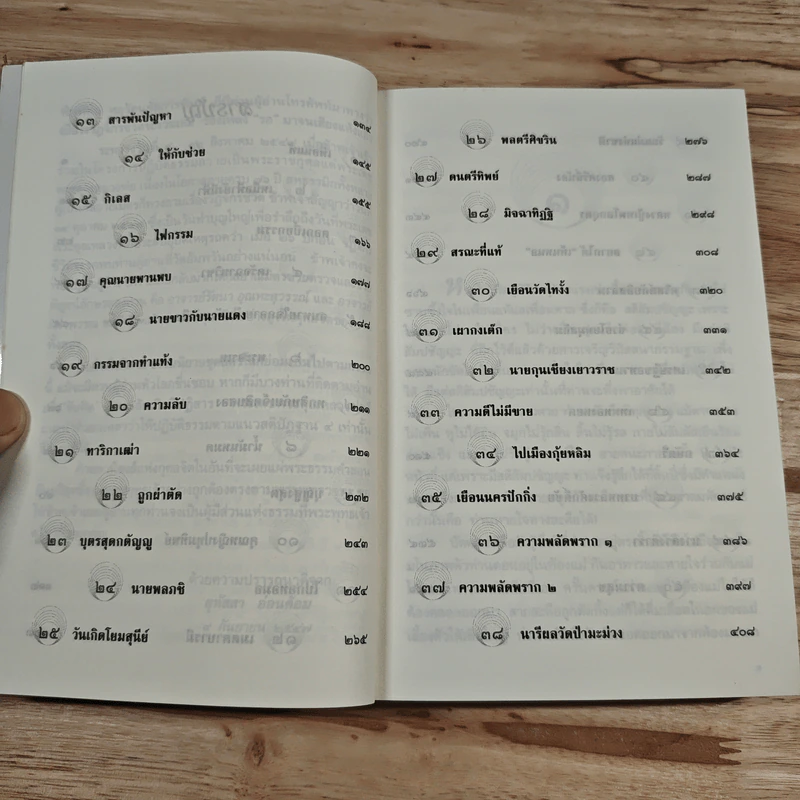 ๑๓ สารพันปัญหา ๑๓๔
๑๔ ให้กับช่วย ๑๔๕
๑๕ กิเลส ๑๕๕
๑๖ ไฟกรรม ๑๖๖
๑๗ คุณนายพานพบ ๑๗๗
๑๘ นายขาวกับนายแดง ๑๘๘
๑๙ กรรมจากทำแท้ง ๒๐๐
๒๐ ความลับ ๒๑๑
๒๑ ทาริกาเฒ่า ๒๒๑
๒๒ ถูกผ่าตัด ๒๓๒
๒๓ บุตรสุดกตัญญู ๒๔๓
๒๔ นายพลภชิ ๒๕๔
๒๕ วันเกิดโยมสุนีย์ ๒๖๕
๒๖ พลตรีศิขวิน ๒๗๖
๒๗ ดนตรีทิพย์ ๒๘๗
๒๘ มิจฉาทิฏฐิ ๒๙๘
๒๙ สรณะที่แท้ ๓๐๘
๓๐ เยือนวัดไทงั้ง ๓๒๐
๓๑ เผากงเต๊ก ๓๓๑
๓๒ นายกุนเชียงเยาวราช ๓๔๒
๓๓ ความดีไม่มีขาย ๓๕๓
๓๔ ไปเมืองกุ้ยหลิม ๓๖๔
๓๕ เยือนนครปักกิ่ง ๓๗๕
๓๖ ความพลัดพราก ๑ ๓๘๖
๓๗ ความพลัดพราก ๒ ๓๙๗
๓๘ นารีผลวัดป่ามะม่วง ๔๐๘